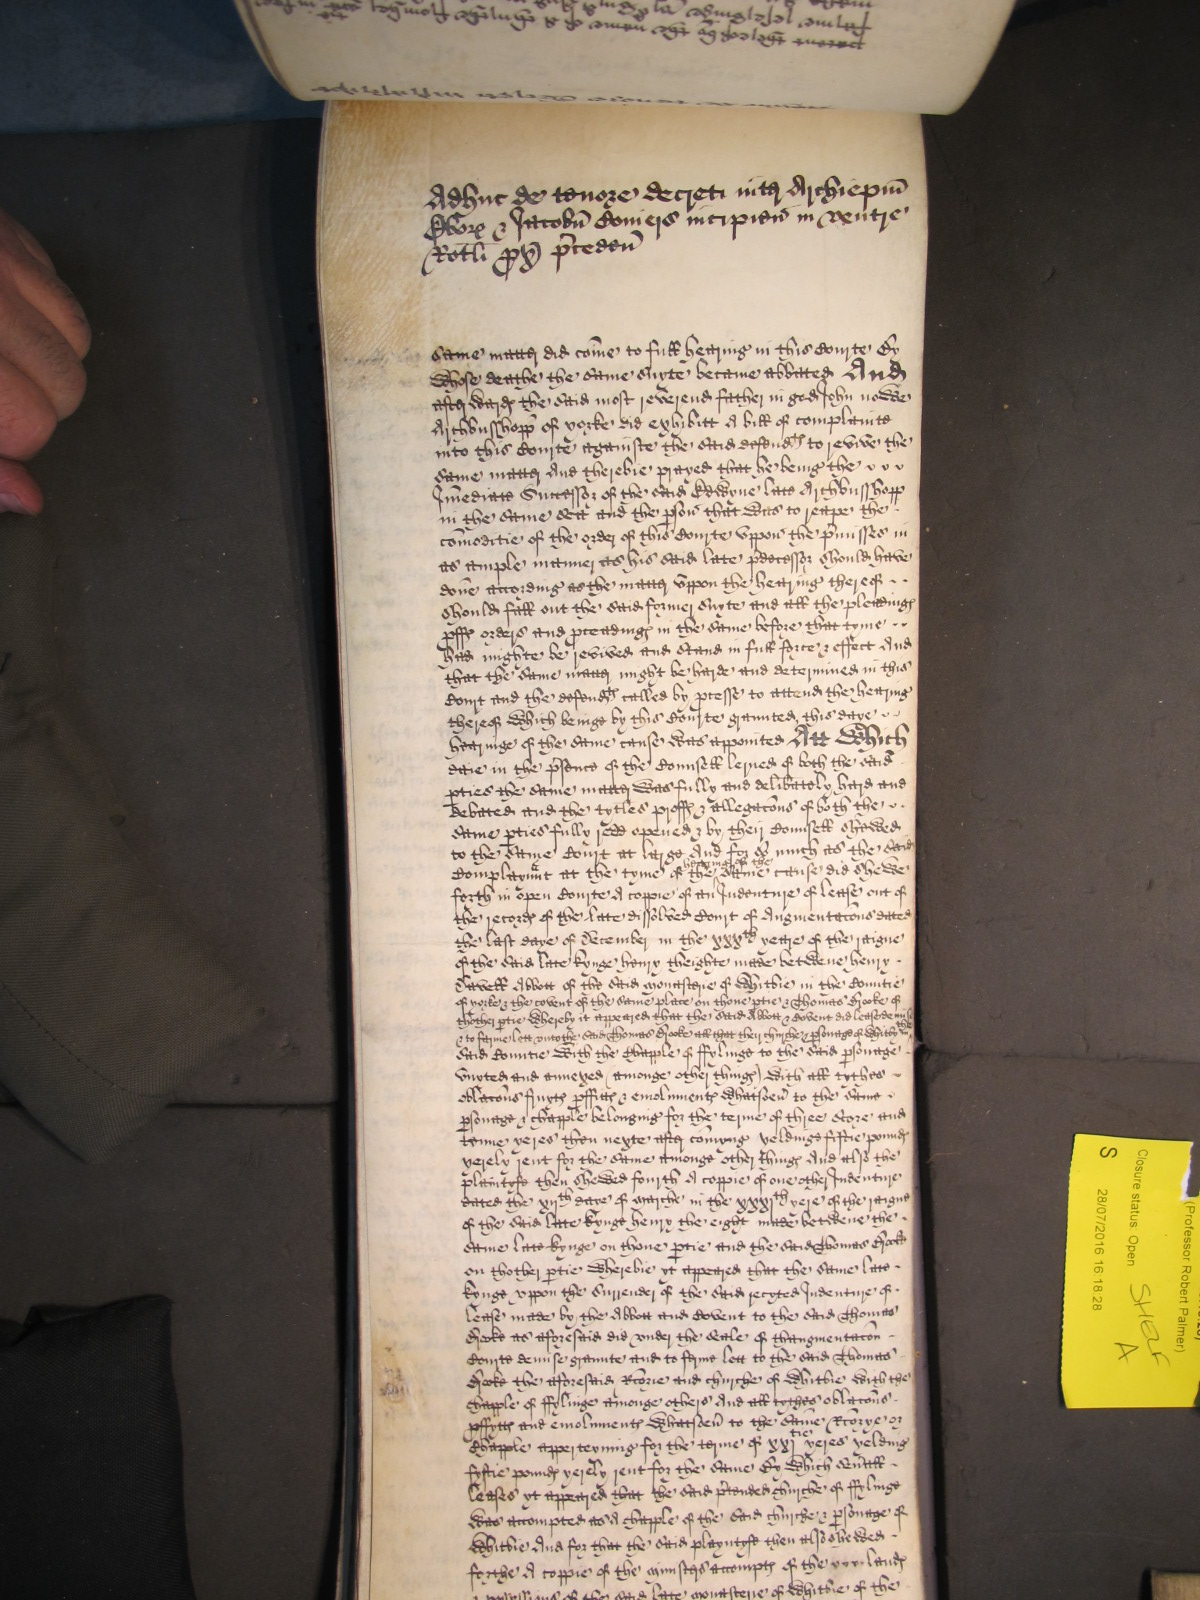 Adhuc de tenore decreti int Archiepm
Ebor & Jacobu Coniers incipien in ventre
Rotli px pcedeñ
same matt did come to full hearing in this Courte By
whose deathe the same suyte became abbated And
aft wards the said most reverend father in god John nowe
Archbusshopp of yorke did exhibitt A bill of complainte
into this Courte againste the said defend to revive the
same matt And therebie prayed that he being the
Imediate Successor of the said Edwyne late Archbusshopp
in the same Sea and the pson that was to reape the
comoditie of the order of this Courte vppon the pmisses in
as ample manner as his said late pdecessor should have
done according as the matt vppon the hearing thereof
should fall out the said former suyte and all the pleadings
proffs orders and pceadings in the same before that tyme
had mighte be revived and stand in full force & effect And
that the same matt might be harde and determined in this
Court and the defend called by pcesse to attend the hearing
thereof which beinge by this Courte graunted, this daye
hearinge of the same cause was appointed Att which
daie in the psence of the Counsell lerned of both the said
pties the same matt was fully and delibatly hard and
debated and the tytles proffs & allegacons of both the
same pties fully redd opened & by their Counsell shewed
to the same Court at large And for as much as the said
Complaynnt at the tyme of the hearing of the same cause did shewe
forth in open Courte A coppie of an Indenture of lease out of
the records of the late dissolved Court of Augmentacons dated
the last daye of December in the xxxth yeare of the raigne
of the said late kynge henry theighte made betwene henry
Davell Abbott of the said monasterie of Whitbie in the Countie
of yorke & the covent of the same place on thone ptie & Thomas Hooke of
thother ptie whereby it appeared that the said Abbott & Covent did lease demise
& to farme lett unto the said Thomas Hooke all that their churche & psonage of whitby in the
said Countie with the Chapple of ffylinge to the said psonage
vnyted and annexed (amonge other things) with all tythes
oblacons fruyts pffitts & emolumts whatsoev to the same
psonage & chapple belonging for the terme of three score and
tenne yeres then nexte aft comyng yeldinge fiftie pounds
yerely rent for the same amonge other things And also the
plaintyfe then shewed fourth A coppie of one other Indenture
dated the xijth daye of marche in the xxxjth yere of the raigne
of the said late kynge henry the eight made betwene the
same late kynge on thone ptie and the said Thomas Hooke
on thother ptie wherebie yt appeared that the same late
kynge vppon the surrender of the said recyted Indenture of
lease made by the Abbott and Covent to the said Thomas
Hooke as aforesaid did vnder the seale of thaugmentacon
Courte demise graunte and to farme lett to the said Thomas
Hooke the aforesaid Rcorie and churche of whitbie with the
chapple of ffylinge amonge others And all tythes oblacons
pffytts and emolumts whatsoev to the same Rcorye or
Chapple apperteyning for the terme of xxjtie yeres yelding
fyftie pounds yerely rent for the same By which sevall
leases yt appeared that the said ptended churche of ffylinge
was accompted as A chapple of the said churche & psonage of
whitbie And for that the said playntyfe then also shewed
forthe A coppie of the ministers accompts of the lands
& possessions of the said late monasterie of whitbie of the
(Professor Robert Palmer)
Closure status: Open
S 28/07/2016 16:18:28
Shelf
A